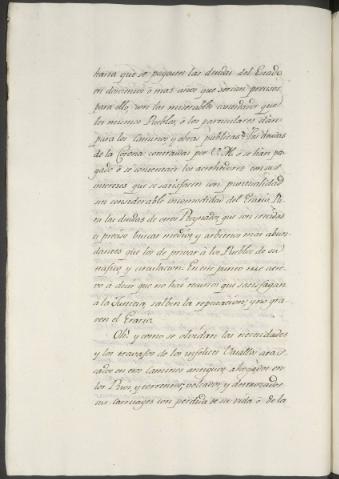 haria que se paguen las deudas del Estado
en doscientos o mas años que serian precisos
para ello, con los miserables que
los mismos Pueblos, o los particulares dan
para los caminos y obras publicas. Las deudas
de la Corona contraidas por V. M. o se han pa-
gado o se contentan los acrehedores con sus
intereses que se satisfacen con puntualidad
sin considerable incomodidad del Erario. Pa-
ra las deudas de otros Reynados, que son crecidas
es preciso buscar medios, y arbitrios mas abun-
dantes que los de privar à los Pueblos de su
trafico, y circulacion. En este punto me
à decir que no hay recursos que satisfagan
à la Justicia, salben la reputacion, y no gra-
ven el Erario.
Oh! y como se olvidan las necesidades
y los travajos de los infelices Vasallos atas-
cados en esos caminos antiguos, ahogados en
los Rios, y torrentes, volcados, y destrozados
sus carruages con perdida de su vida, o de la